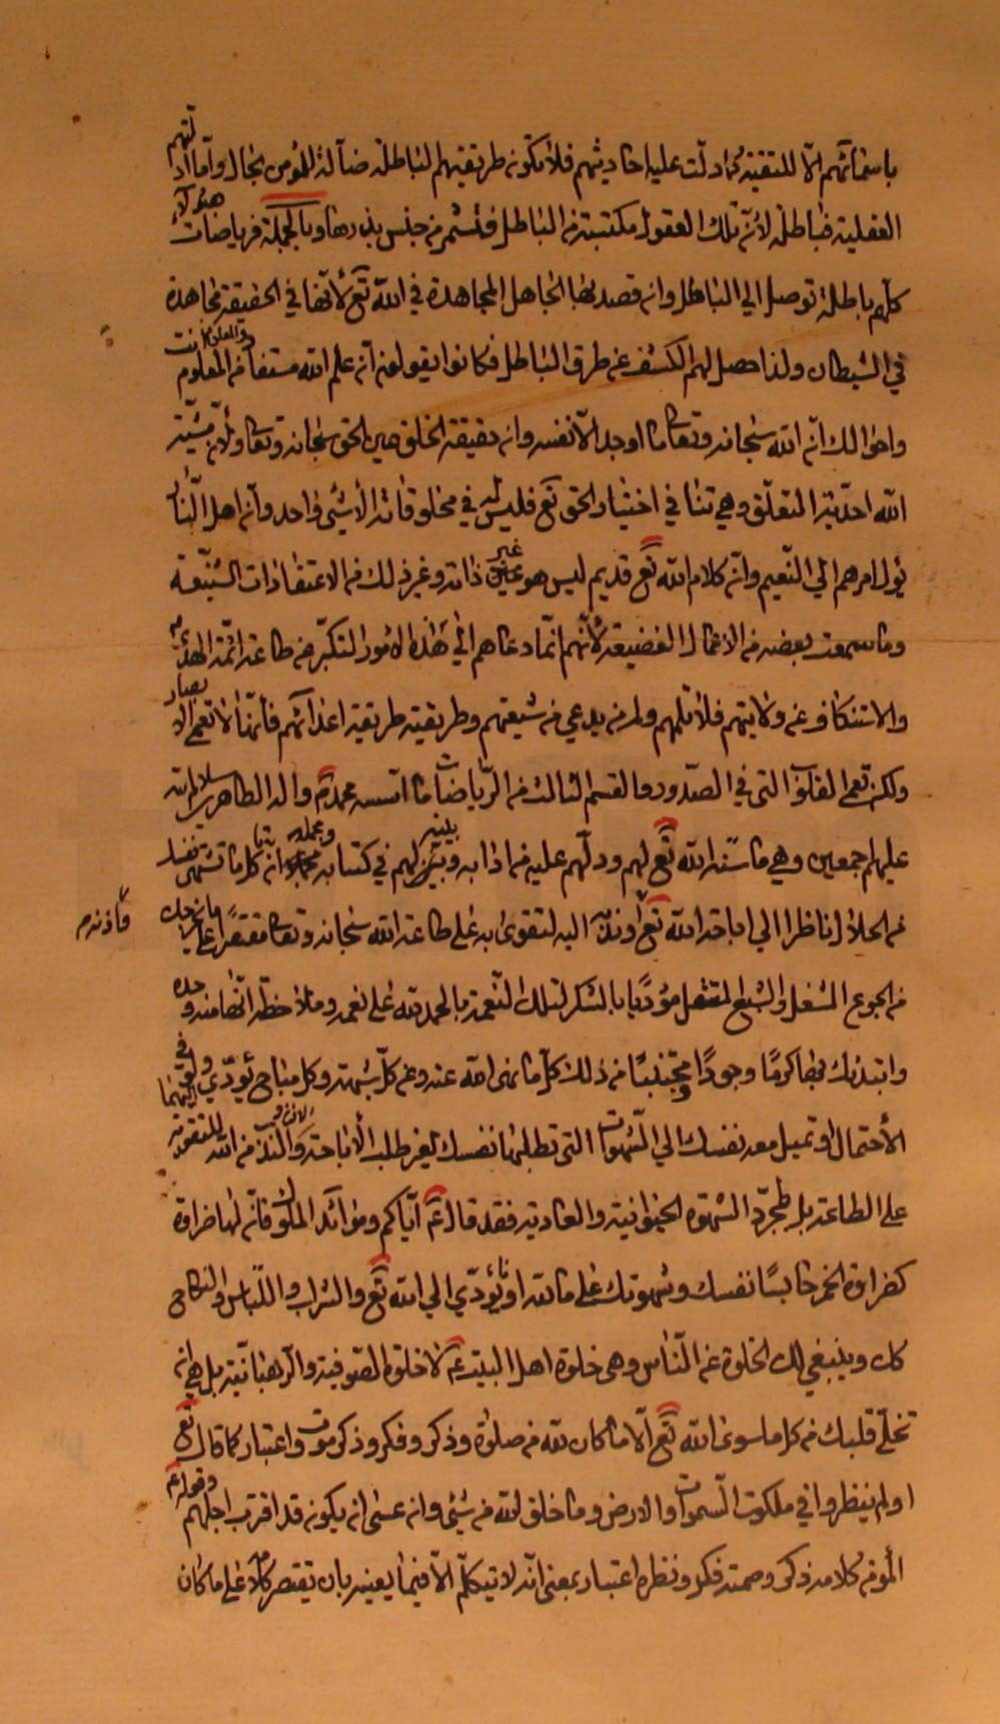 باسمائهم الا للتقية كما دلت عليه احاديثهم فلا تكون طريقتهم الباطلة ضالة للمؤمن بحال واما ادلتهم
العقلية فباطلة لان تلك العقول مكتسبة من الباطل فتثمر من جنس بذرها وبالجملة فرياضات هؤلاء
كلهم باطلة توصل الى الباطل وان قصد بها الجاهل المجاهدة في الله تع لانها في الحقيقة مجاهدة
في الشيطان ولذا حصل لهم الكشف عن طرق الباطل فكانوا يقولون ان علم الله مستفاد من المعلوم
واحوالك ان الله سبحانه وتعالى ما اوجد الا نفسه وان حقيقة الخلق عين الحق سبحانه وتعالى ولان مشية
الله احدية التعلق وهي تنافي اختيار الحق تع فليس له في مخلوقاته الا شئ واحد وان اهل النار
يؤل امرهم الى النعيم وان كلام الله تع قديم ليس هو غير ذاته وغير ذلك من الاعتقادات الشنيعة
وما سمعت بعضه من الاعمال الفضيعة لانهم انما دعاهم الى هذه الامور التكبر عن طاعة ائمة الهدى
والاستنكاف عن ولايتهم فلا تلمهم ولم من يدعي من شيعتهم وطريقته طريقة اعدائهم فانها لا تعمى الابصار
ولكن تعمى القلوب التي في الصدور والقسم الثالث من الرياضات ما اسسه محمد وآله الطاهرين سلام الله
عليهم اجمعين وهي ما سنه الله تع لهم ودلهم عليه من ادابه وبين لهم في كتابه انه كل ما تشتهي نفسك
من الحلال ناظرا الى اباحة الله تع وندبه اليه لتقوى به على طاعة الله سبحانه وتعالى مقتصرا على
فاذنه
من الجوع المشغل والشبع المثقل مؤديا بالشكر لتلك النعمة بالحمد لله على نعمه وملاحظة انها منه وحده
وابتدئك بها كرما وجودا مجتنبا من ذلك كل ما نهى الله عنه وعن كل شبهة وكل مباح يؤدي اليهما ولو في
الاحتمال او تميل معه نفسك الى الشهوات التي تطلبها نفسك لغير طلب الاباحة والندب من الله للتقوية
على الطاعة بل لمجرد الشهوة الحيوانية والعادية فقد قال ع اياكم وموائد الملوك فان لها ضراوة
كضراوة الخمر حابسا نفسك وشهوتك على ما لله او يؤدي الى الله تع والشراب واللباس والنكاح
كك وينبغي لك الخلوة عن الناس وهى خلوة اهل البيت ع لا خلوة الصوفية والرهبانية بل هي ان
تخلي قلبك من كل ما سوى الله تع الا ما كان لله من صلوة وذكر وفكر وذكر موت واعتبار كما قال تع
اولم ينظروا في ملكوت السموات والارض وما خلق الله من شئ وان عسى ان يكون قد اقترب اجلهم وقوله ع
المؤمن كلامه ذكر وصمته فكر ونظره اعتبار بمعنى انه لا يتكلم الا فيما يعنيه بان يقتصر كلامه على ما كان